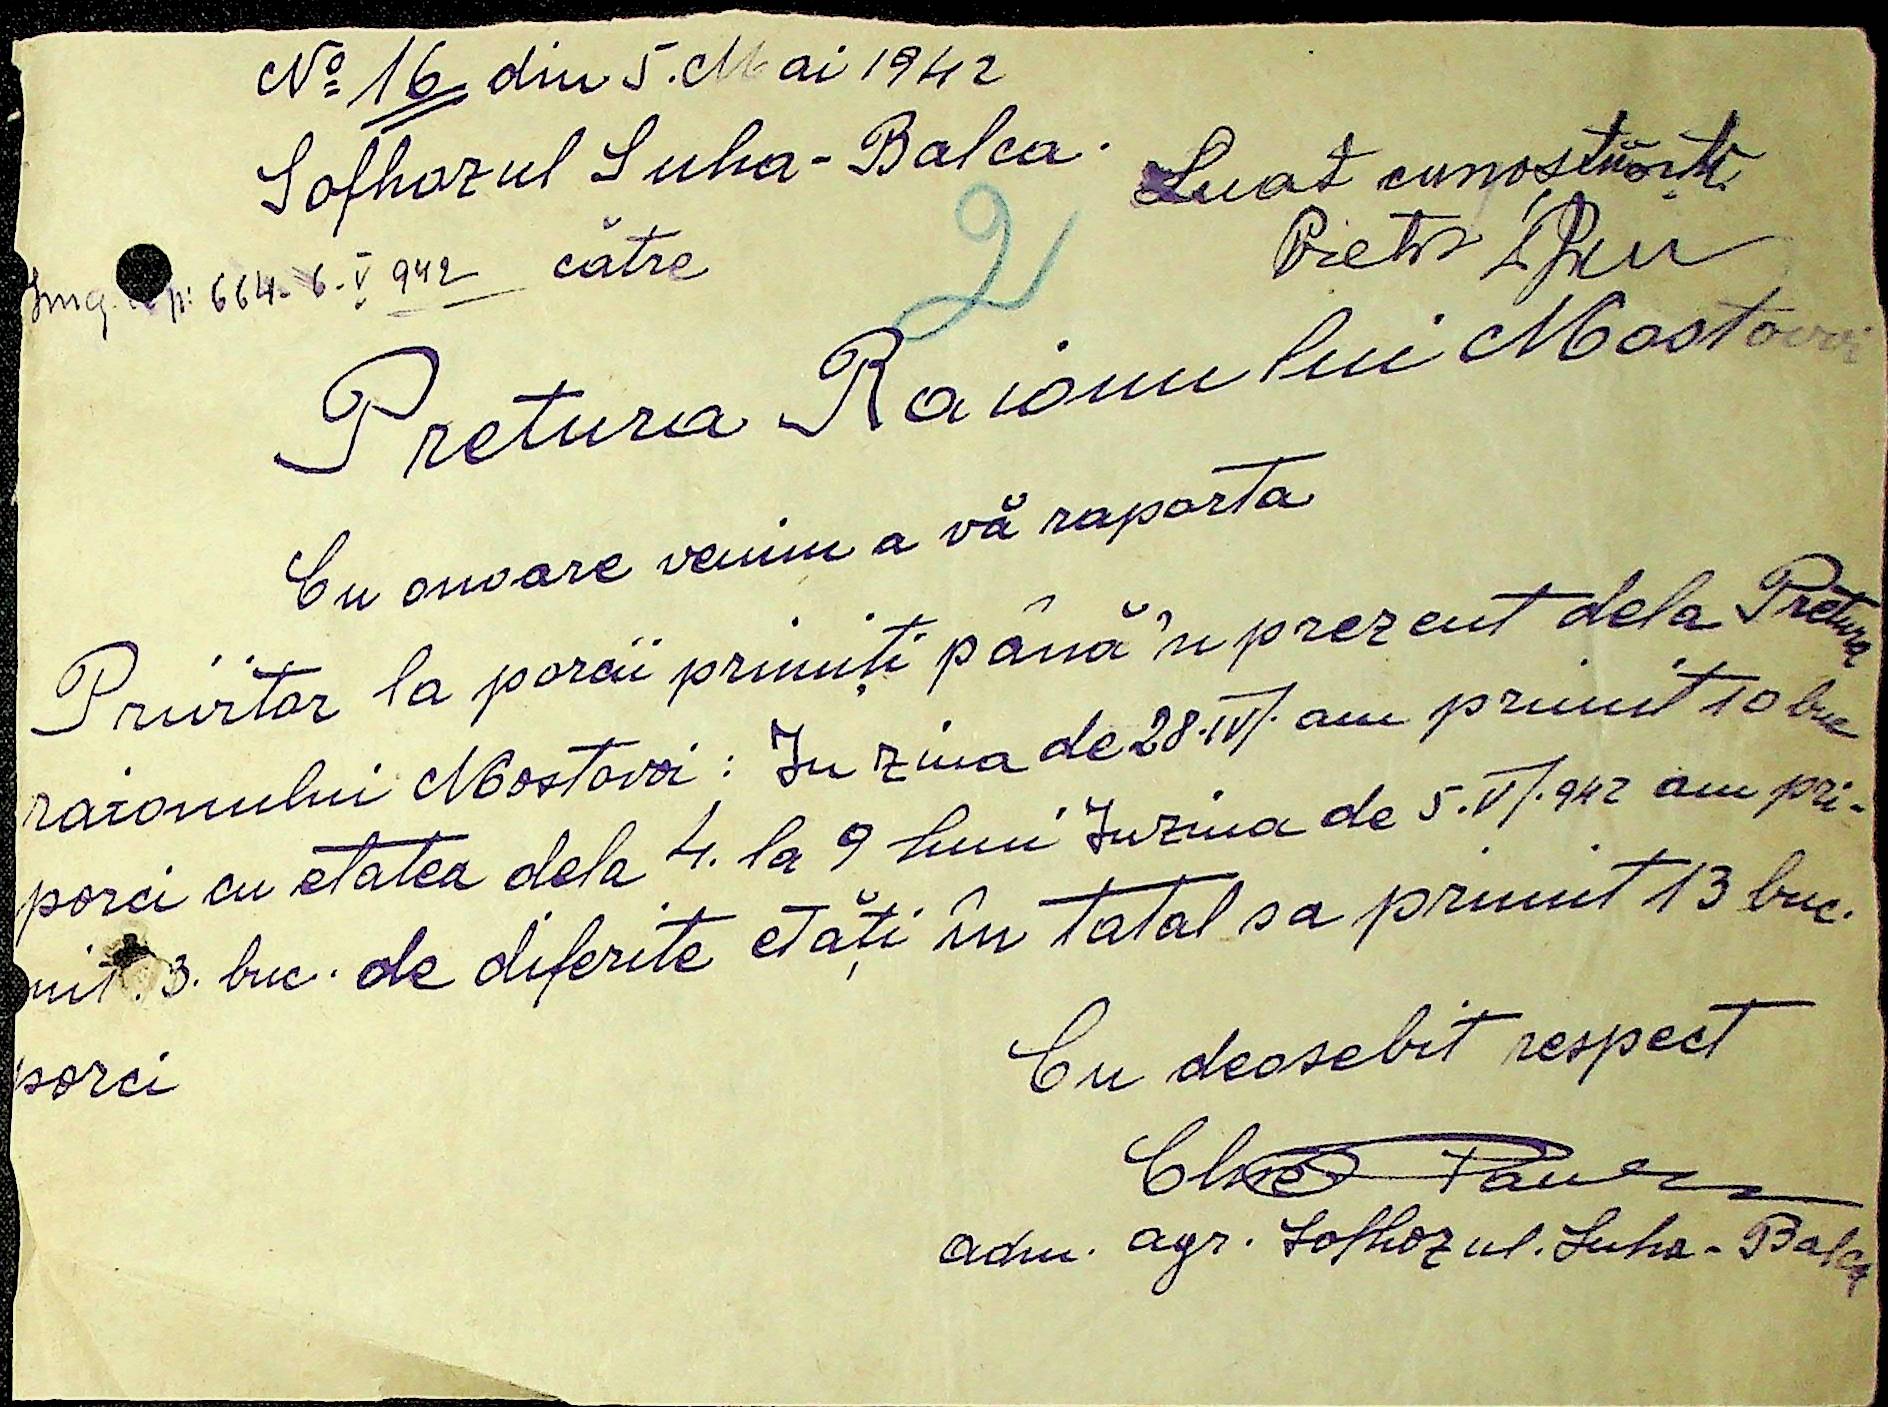 No 16 din 5. Mai 1942
Sofhozul Suha-Balca.
Luat cunoștință
către
664. 6.V 942
2
Pretura Raionului Mostovoi
Cu onoare venim a vă raporta
Priivitor la porcii primiți până 'n prezent dela Pretura
raionului Mostovoi: In ziua de 28.IV. am primit 10 buc
porci cu etatea dela 4. la 9 luni In ziua de 5.V.942 am pri-
mit. 3. buc. de diferite etăți în tatal sa primit 13 buc.
porci
Cu deosebit respect
adm. agr. Sofhozul. Suha-Balca